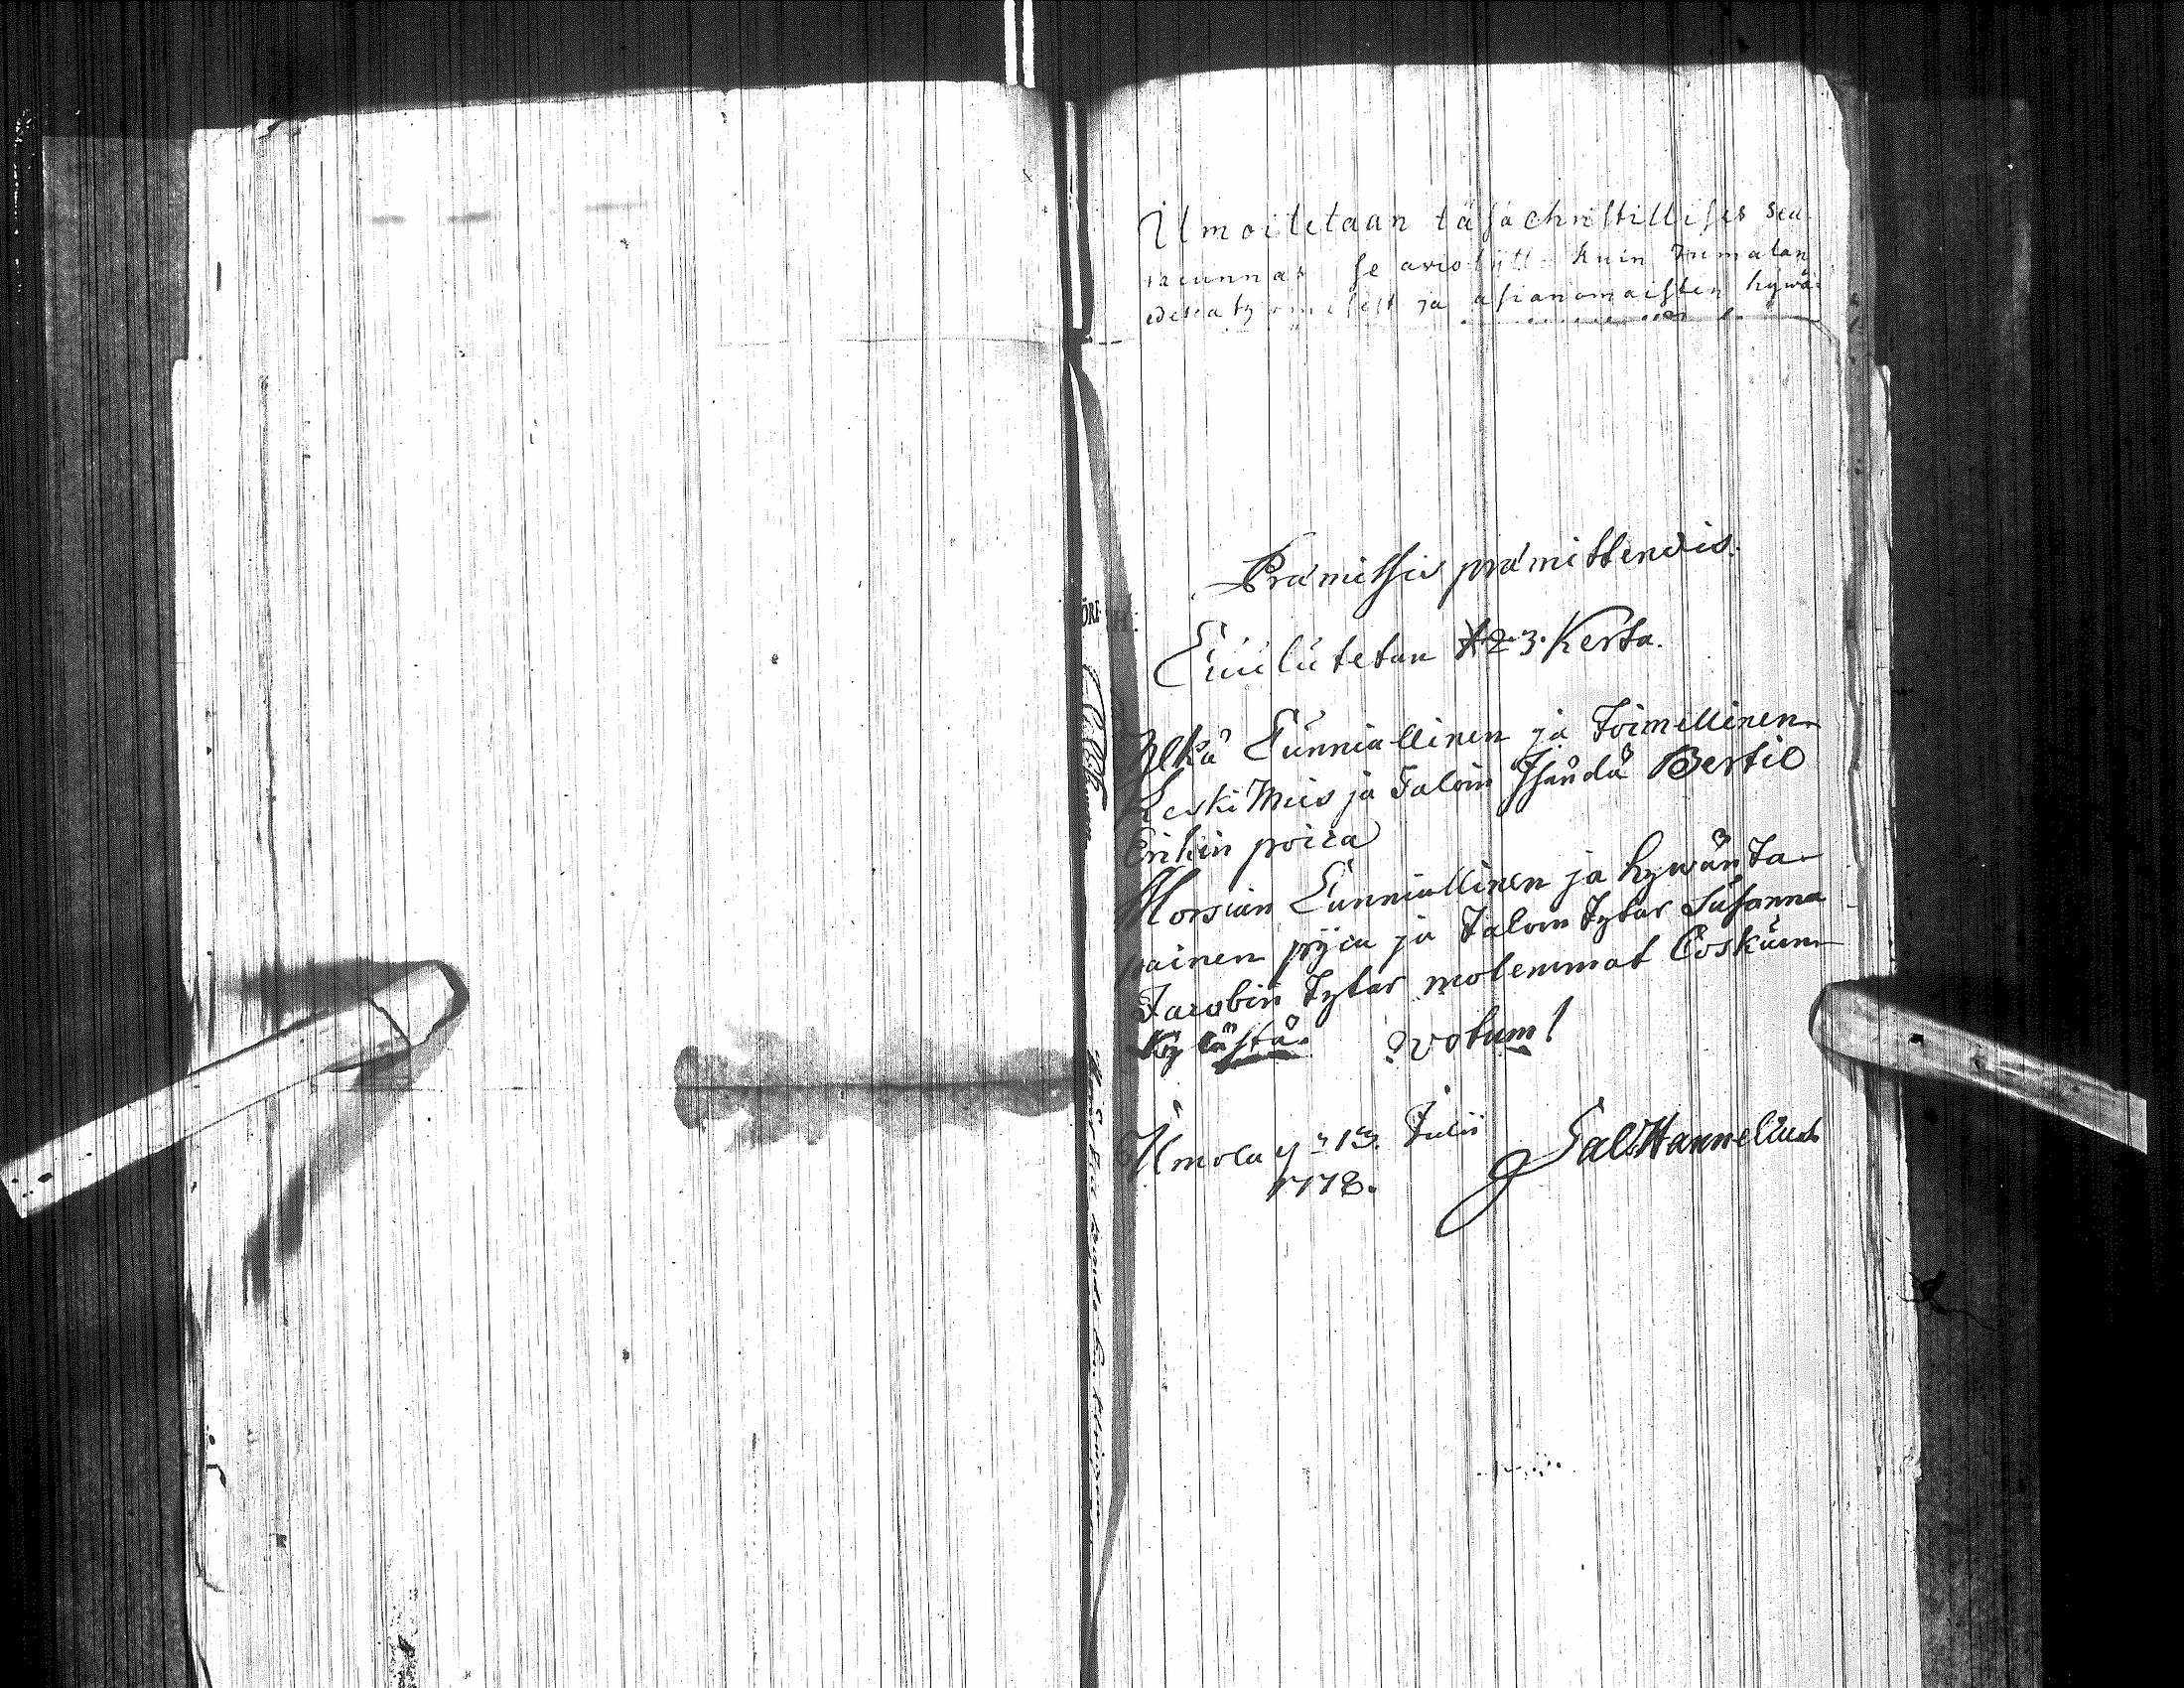 Ilmoitetaan täsä christillises seu-
racunnas se aviolijtto kuin Jumalan
edescatzomisest ja asianomaisten hywä-
Præmissis præmittendis.
Cuulutetan 1 2 3. Kerta.
Ylkä Cunniallinen ja Toimellinen
Leski Mies ja Taloin Isändä Bertil
Erikin poica
Morsian Cunniallinen ja hywänta-
painen pijca ja Talointytar Susanna
Jacobin tytar molemmat Coskuen-
Kylästä. votum!
Ilmola 13. Julii
1778.
Sal: Hannelius